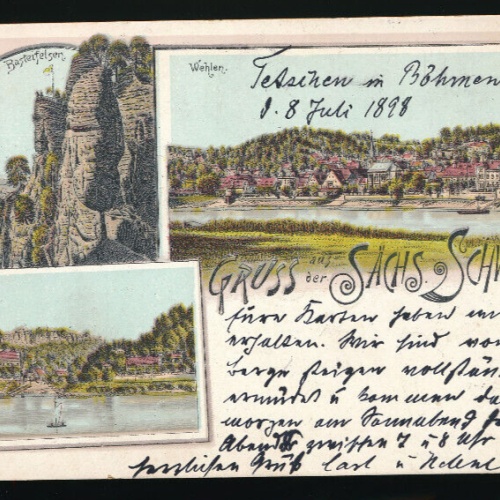 Basteifelsen.
Wehlen.
Tetschen in Böhmen
d. 8 Juli 1898
GRUSS aus der SÄCHS. SCHW
Eure Karten haben wi
erhalten. Wir sind vom
berge steigen vollstän
ermüdet u kommen da
morgen am Sonnabend
Abend zwischen 7 u 8 Uhr
herzlichen Gruß Carl u Helene